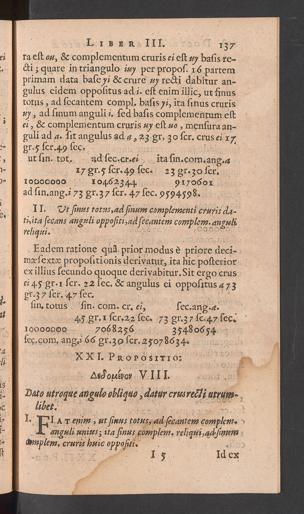 LIBER III. 137
ra est ou, & complementum cruris ei est uy basis re-
cti; quare in triangulo iuy per propos. 16 partem
primam data base yi & crure uy recti dabitur an-
gulus eidem oppositus ad i. est enim illic, ut sinus
totus, ad secantem compl. basis yi, ita sinus cruris
uy, ad sinum anguli i. sed basis complementum est
ei, & complementum cruris uy est uo, mensura an-
guli ad a. sit angulus ad a, 23 gr. 30 scr. crus ei 17
gr. 5 scr. 49 sec.
ut sin. tot. ad sec. cr. ei ita sin. com. ang. a
17 gr. 5 scr. 49 sec. 23 gr. 30 scr.
10000000 10462344 9170601
ad sin. ang. i 73 gr. 37 scr. 47 sec. 9594598.
II. Ut sinus totus, ad sinum complementi cruris da-
ti, ita secans anguli oppositi, ad secantem complem. anguli
reliqui.
Eadem ratione quâ prior modus è priore deci-
mæ sextæ propositionis derivatur, ita hic posterior
ex illius secundo quoque derivabitur. Sit ergo crus
ei 45 gr. 1 scr. 22 sec. & angulus ei oppositus a 73
gr. 37 scr. 47 sec.
sin. totus sin. com. cr. ei, sec. ang. a.
45 gr. 1 scr. 22 sec. 73 gr. 37 sc. 47 sec.
10000000 7068256 35480654
sec. com. ang. i 66 gr. 30 scr. 25078634.
XXI. PROPOSITIO:
Δεδομένον VIII.
Dato utroque angulo obliquo, datur crus recti utrum-
libet.
I. FIAT enim, ut sinus totus, ad secantem complem.
anguli unius; ita sinus complem. reliqui, ad sinum
complem. cruris huic oppositi.
I 5 Id ex